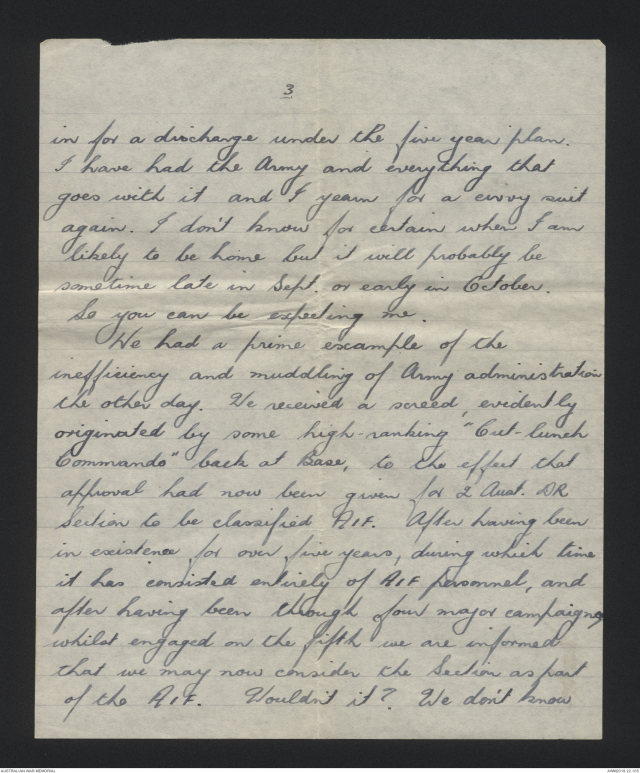 3
in for a discharge under the five year plan.
I have had the Army and everything that
goes with it and I yearn for a civvy suit
again. I don't know for certain when I am
likely to be home but it will probably be
sometime late in Sept. or early in October.
So you can be expecting me.
We had a prime example of the
inefficiency and muddling of Army administration
the other day. We received a screed, evidently
originated by some high-ranking "Cut-lunch
Commando" back at Base, to the effect that
approval had now been given for 2 Aust. DR
Section to be classified AIF. After having been
in existence for over five years, during which time
it has consisted entirely of AIF personnel, and
after having been through four major campaigns
whilst engaged on the fifth we are informed
that we may now consider the Section as part
of the AIF. Wouldn't it? We don't know
AUSTRALIAN WAR MEMORIAL